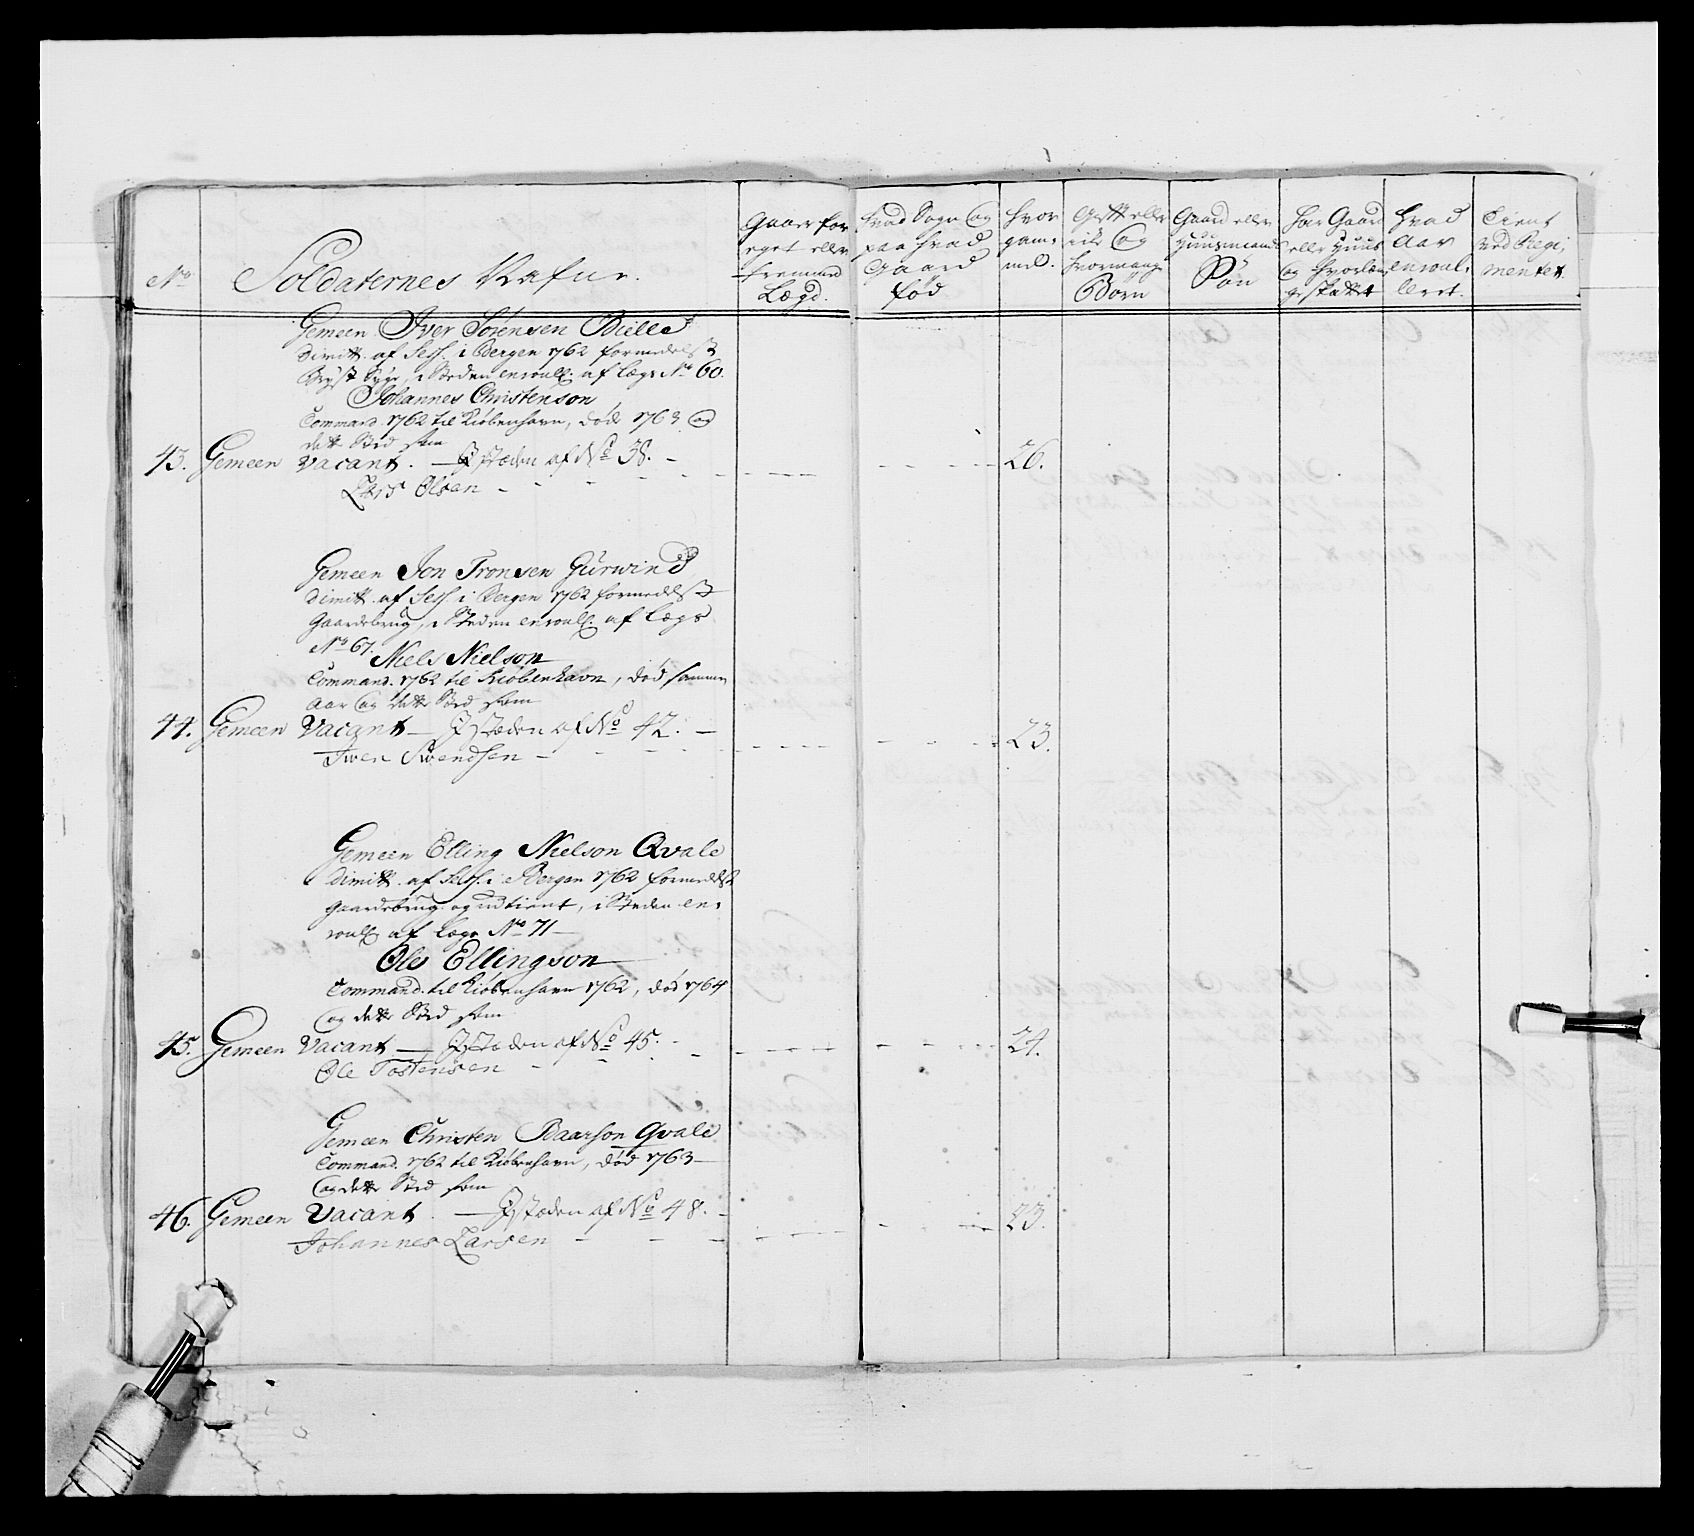 No
Soldaternes Nafne.
Gaaer for
eget eller
fremmed
Lægd.
Hvad Sogn og
paa hvad
Gaard
fød
Hvor
gam-
mel.
Gift eller
eik og
hvormange
Børn
Gaard eller
Huusmands
Søn
Har Gaard
eller Huus
og hvorlæn
Hvad
Aar
enroul-
leret.
Tient
ved Regi-
mentet
Gemeen Iver Sörensen Bielle
Dimitt. af Sess. i Bergen 1762 formedelst
Bryst Syge, i Steden enroull. af Lægs No 60.
Johannes Christenson
Command. 1762 til Kiøbenhavn, død 1763 og
dette Sted som
43. Gemeen Vacant. - I stæden af No 38. - 26.
Lars Olsen
Gemeen Jon Tronsen Gurwin
Dimitt. af Sess. i Bergen 1762 formedelst
Gaardebrug, i Steden enroull. af Lægs
No 67.
Niels Nielson
Command. 1762 til Kiøbenhavn, død samme
Aar og dette Sted som
44. Gemeen Vacant - I stæden af No 42. - 23.
Iver Svendsen -
Gemeen Elling Nielson Qvale
Dimitt. af Sess. i Bergen 1762 formedelst
Gaardebrug og udtient, i Steden en-
roull. af Lægs No 71
Ole Ellingson
Command. til Kiøbenhavn 1762, død 1764
og dette Sted som
45. Gemeen Vacant - I stæden af No 45. - 24.
Ole Tostensen
Gemeen Christen Baarson Qvale
Command. 1762 til Kiøbenhavn, død 1763
og dette Sted som
46. Gemeen Vacant. - I stæden af No 48. - 23.
Johannes Larsen